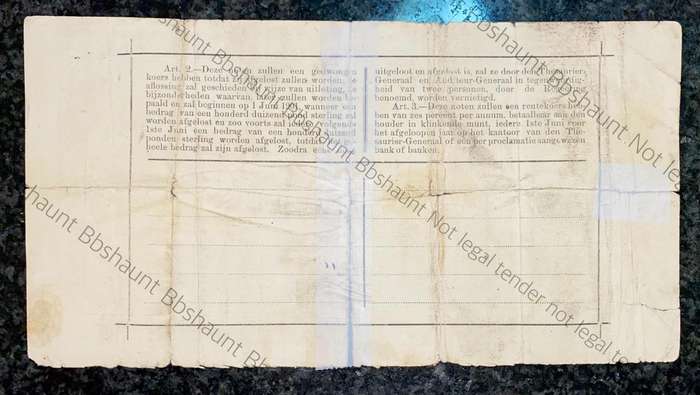 Art. 2.—Deze noten zullen een gedwongen
koers hebben totdat ze afgelost zullen worden; de
aflossing zal geschieden bij wijze van uitloting, de
bijzonderheden waarvan later zullen worden be-
paald en zal beginnen op 1 Juni wanneer een
bedrag van een honderd duizend pond sterling zal
worden afgelost en zoo voorts zal iedere volgende
1ste Juni een bedrag van een honderd duizend
ponden sterling worden afgelost, totdat het ge-
heele bedrag zal zijn afgelost. Zoodra eene
uitgeloot en afgelost is, zal ze door den Thesaurier-
Generaal en Auditeur-Generaal in tegenwoordig-
heid van twee personen, door de Regeering
benoemd, worden vernietigd.
Art. 3.—Deze noten zullen een rentekoers heb-
ben van zes percent per annum, betaalbaar aan den
houder in klinkende munt, iedere 1ste Juni voor
het afgeloopen jaar op het kantoor van den The-
saurier-Generaal of een per proclamatie aangewezen
bank of banken.
Bbshaunt Bbshaunt Not legal
Bbshaunt Bbshaunt Bbshaunt Not legal tender not legal tender
Bbshaunt Bbshaunt Bbshaunt